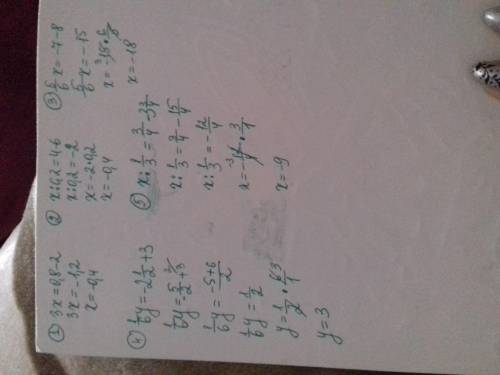 ① 3x=0,8-2
3x=-1,2
x=-0,4
② x:0,2=4-6
x:0,2=-2
x=-2·0,2
x=-0,4
③ 5/6 x=-7-8
5/6 x=-15
x=-15·6/5
x=-18
④ 1/6 y=-2 1/2+3
1/6 y=-5/2+3
1/6 y=(-5+6)/2
1/6 y=1/2
y=1/2·6/1
y=3
⑤ x:1/3=3/4-3 3/4
x:1/3=3/4-15/4
x:1/3=-12/4
x=-12/4·3/1
x=-9